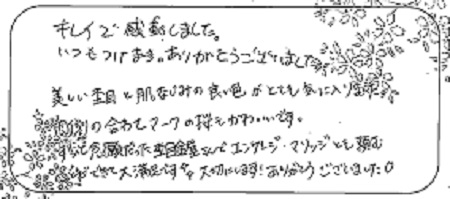 キレイで感動しました。
いつもつけます。ありがとうございました。
美しい杢目と肌なじみの良い色がとても気に入りました
の合わせマークの桜もかわいいです。
ずっと念願だった杢目金屋さんでエンゲージ・マリッジとも頼む
できて大満足です。大切にします!ありがとうございました